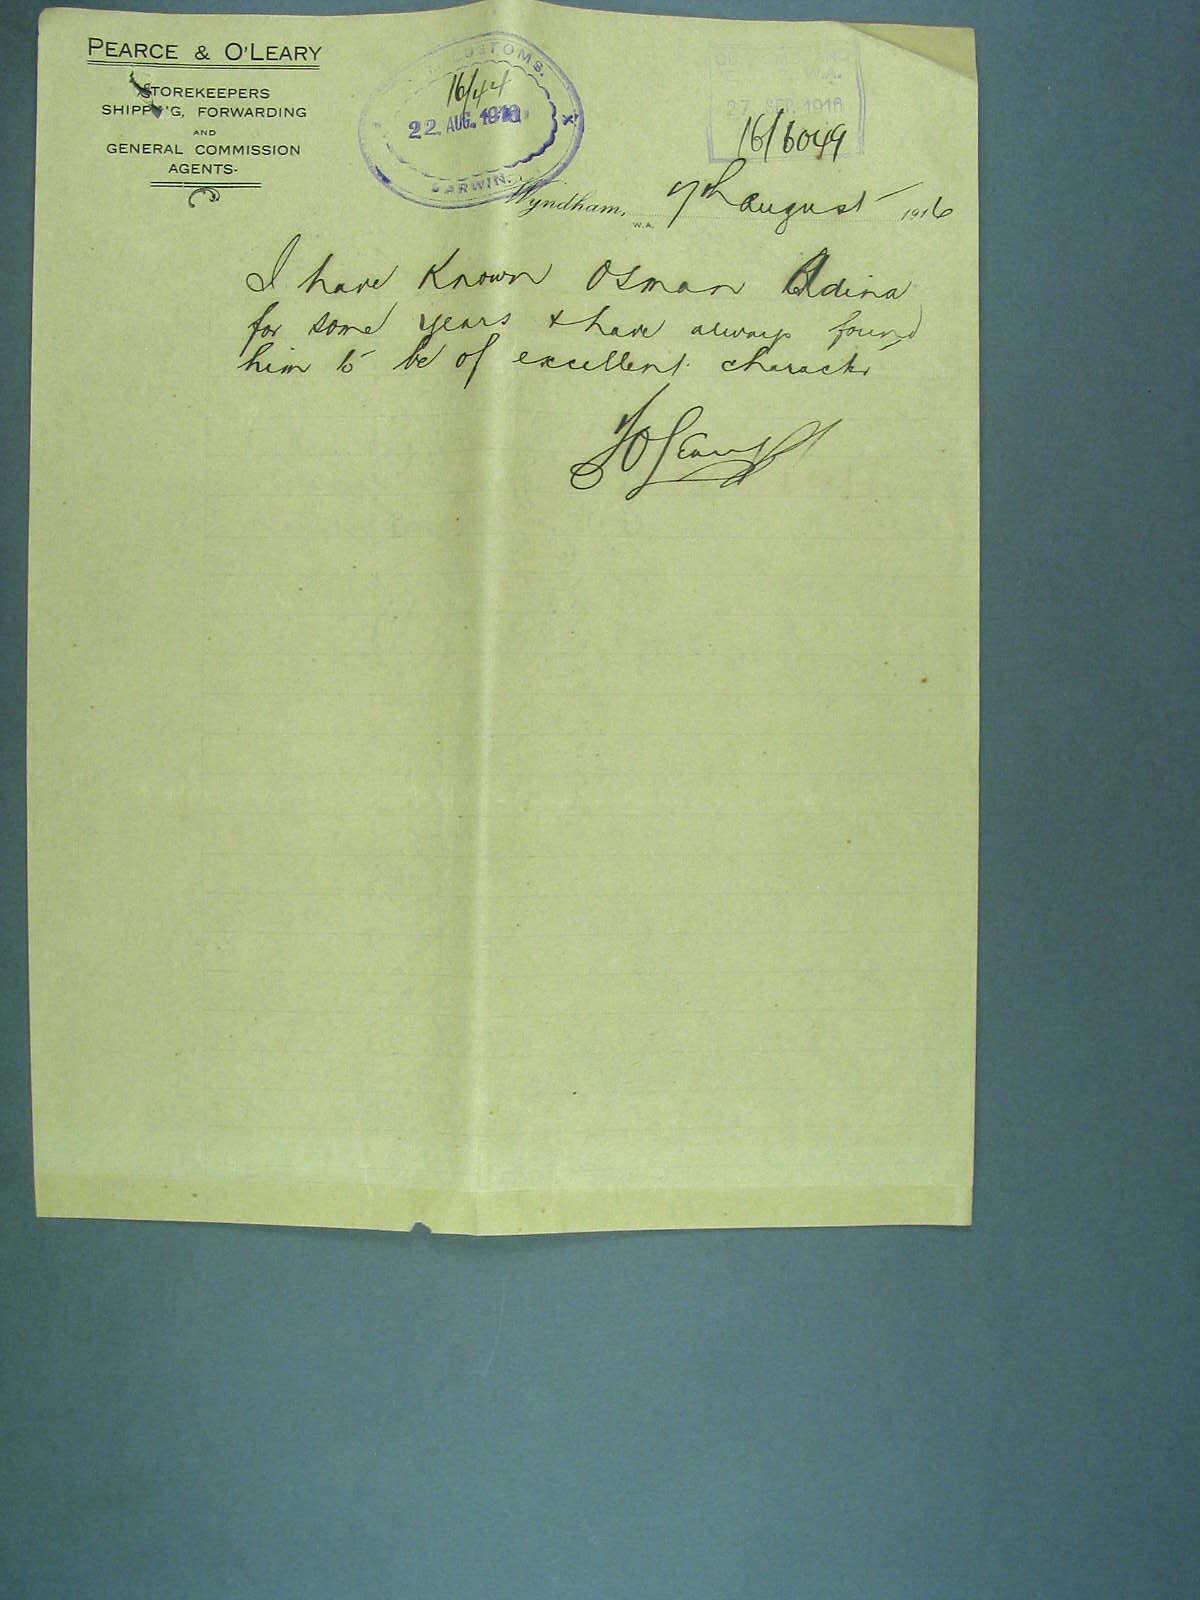 PEARCE & O'LEARY
STOREKEEPERS
SHIPP'G, FORWARDING
AND
GENERAL COMMISSION
AGENTS.
CUSTOMS.
16/44
22. AUG. 1916
DARWIN.
W.A.
27. SEP. 1916
16/6049
Wyndham, W.A. 7th august 1916
I have known Osman Adina
for some years & have always found
him to be of excellent character
O'Leary